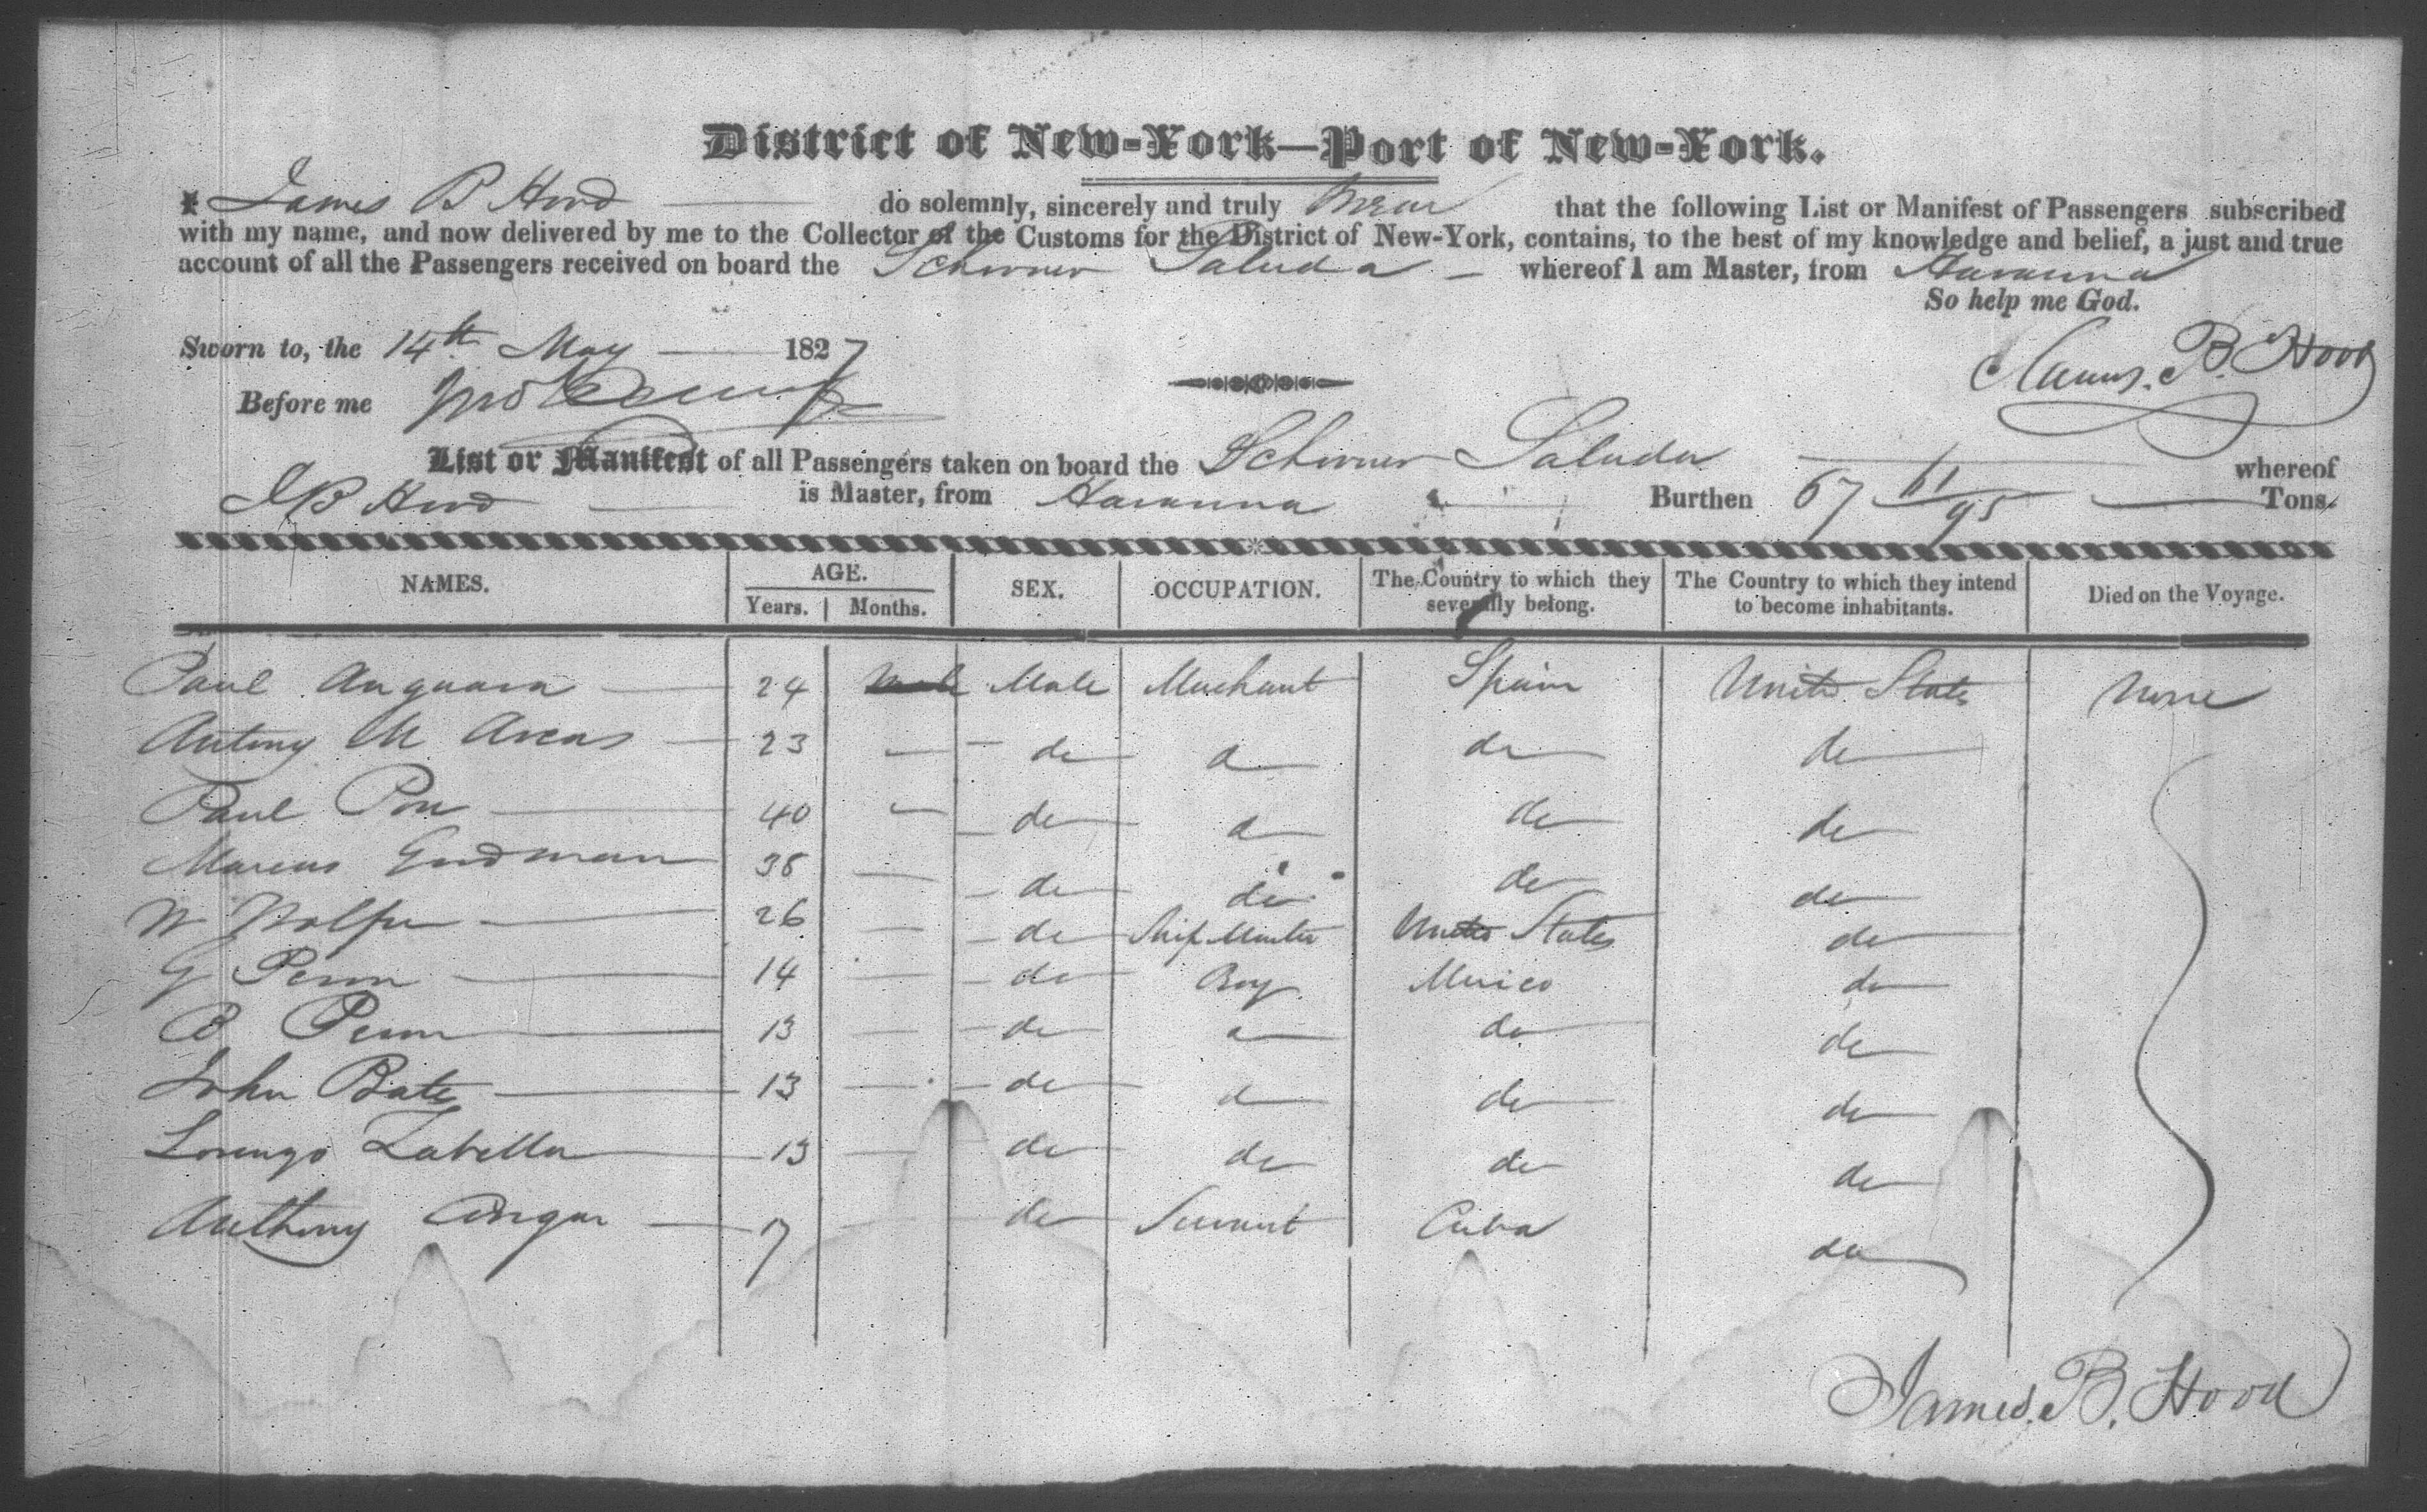 District of New-York—Port of New-York.
I James B Hood do solemnly, sincerely and truly Swear that the following List or Manifest of Passengers subscribed
with my name, and now delivered by me to the Collector of the Customs for the District of New-York, contains, to the best of my knowledge and belief, a just and true
account of all the Passengers received on board the Schooner Saluda whereof I am Master, from Havanna
So help me God.
Sworn to, the 14th May 1827
James. B. Hood
Before me
List or Manifest of all Passengers taken on board the Schooner Saluda whereof
J B Hood is Master, from Havanna Burthen 67 61/95 Tons.
NAMES. AGE. Years. Months. SEX. OCCUPATION. The Country to which they severally belong. The Country to which they intend to become inhabitants. Died on the Voyage.
Paul Anguara 24 Male Merchant Spain United States None
Antony M Areas 23 do do do do
Paul Pon 40 do do do do
Marcus 38 do do do do
W Wolfe 26 do Ship Master United States do
G Penn 14 do Boy Mexico do
B Penn 13 do do do do
John Bate 13 do do do do
Lorenzo Labella 13 do do do do
Anthony 17 do Servant Cuba do
James. B. Hood